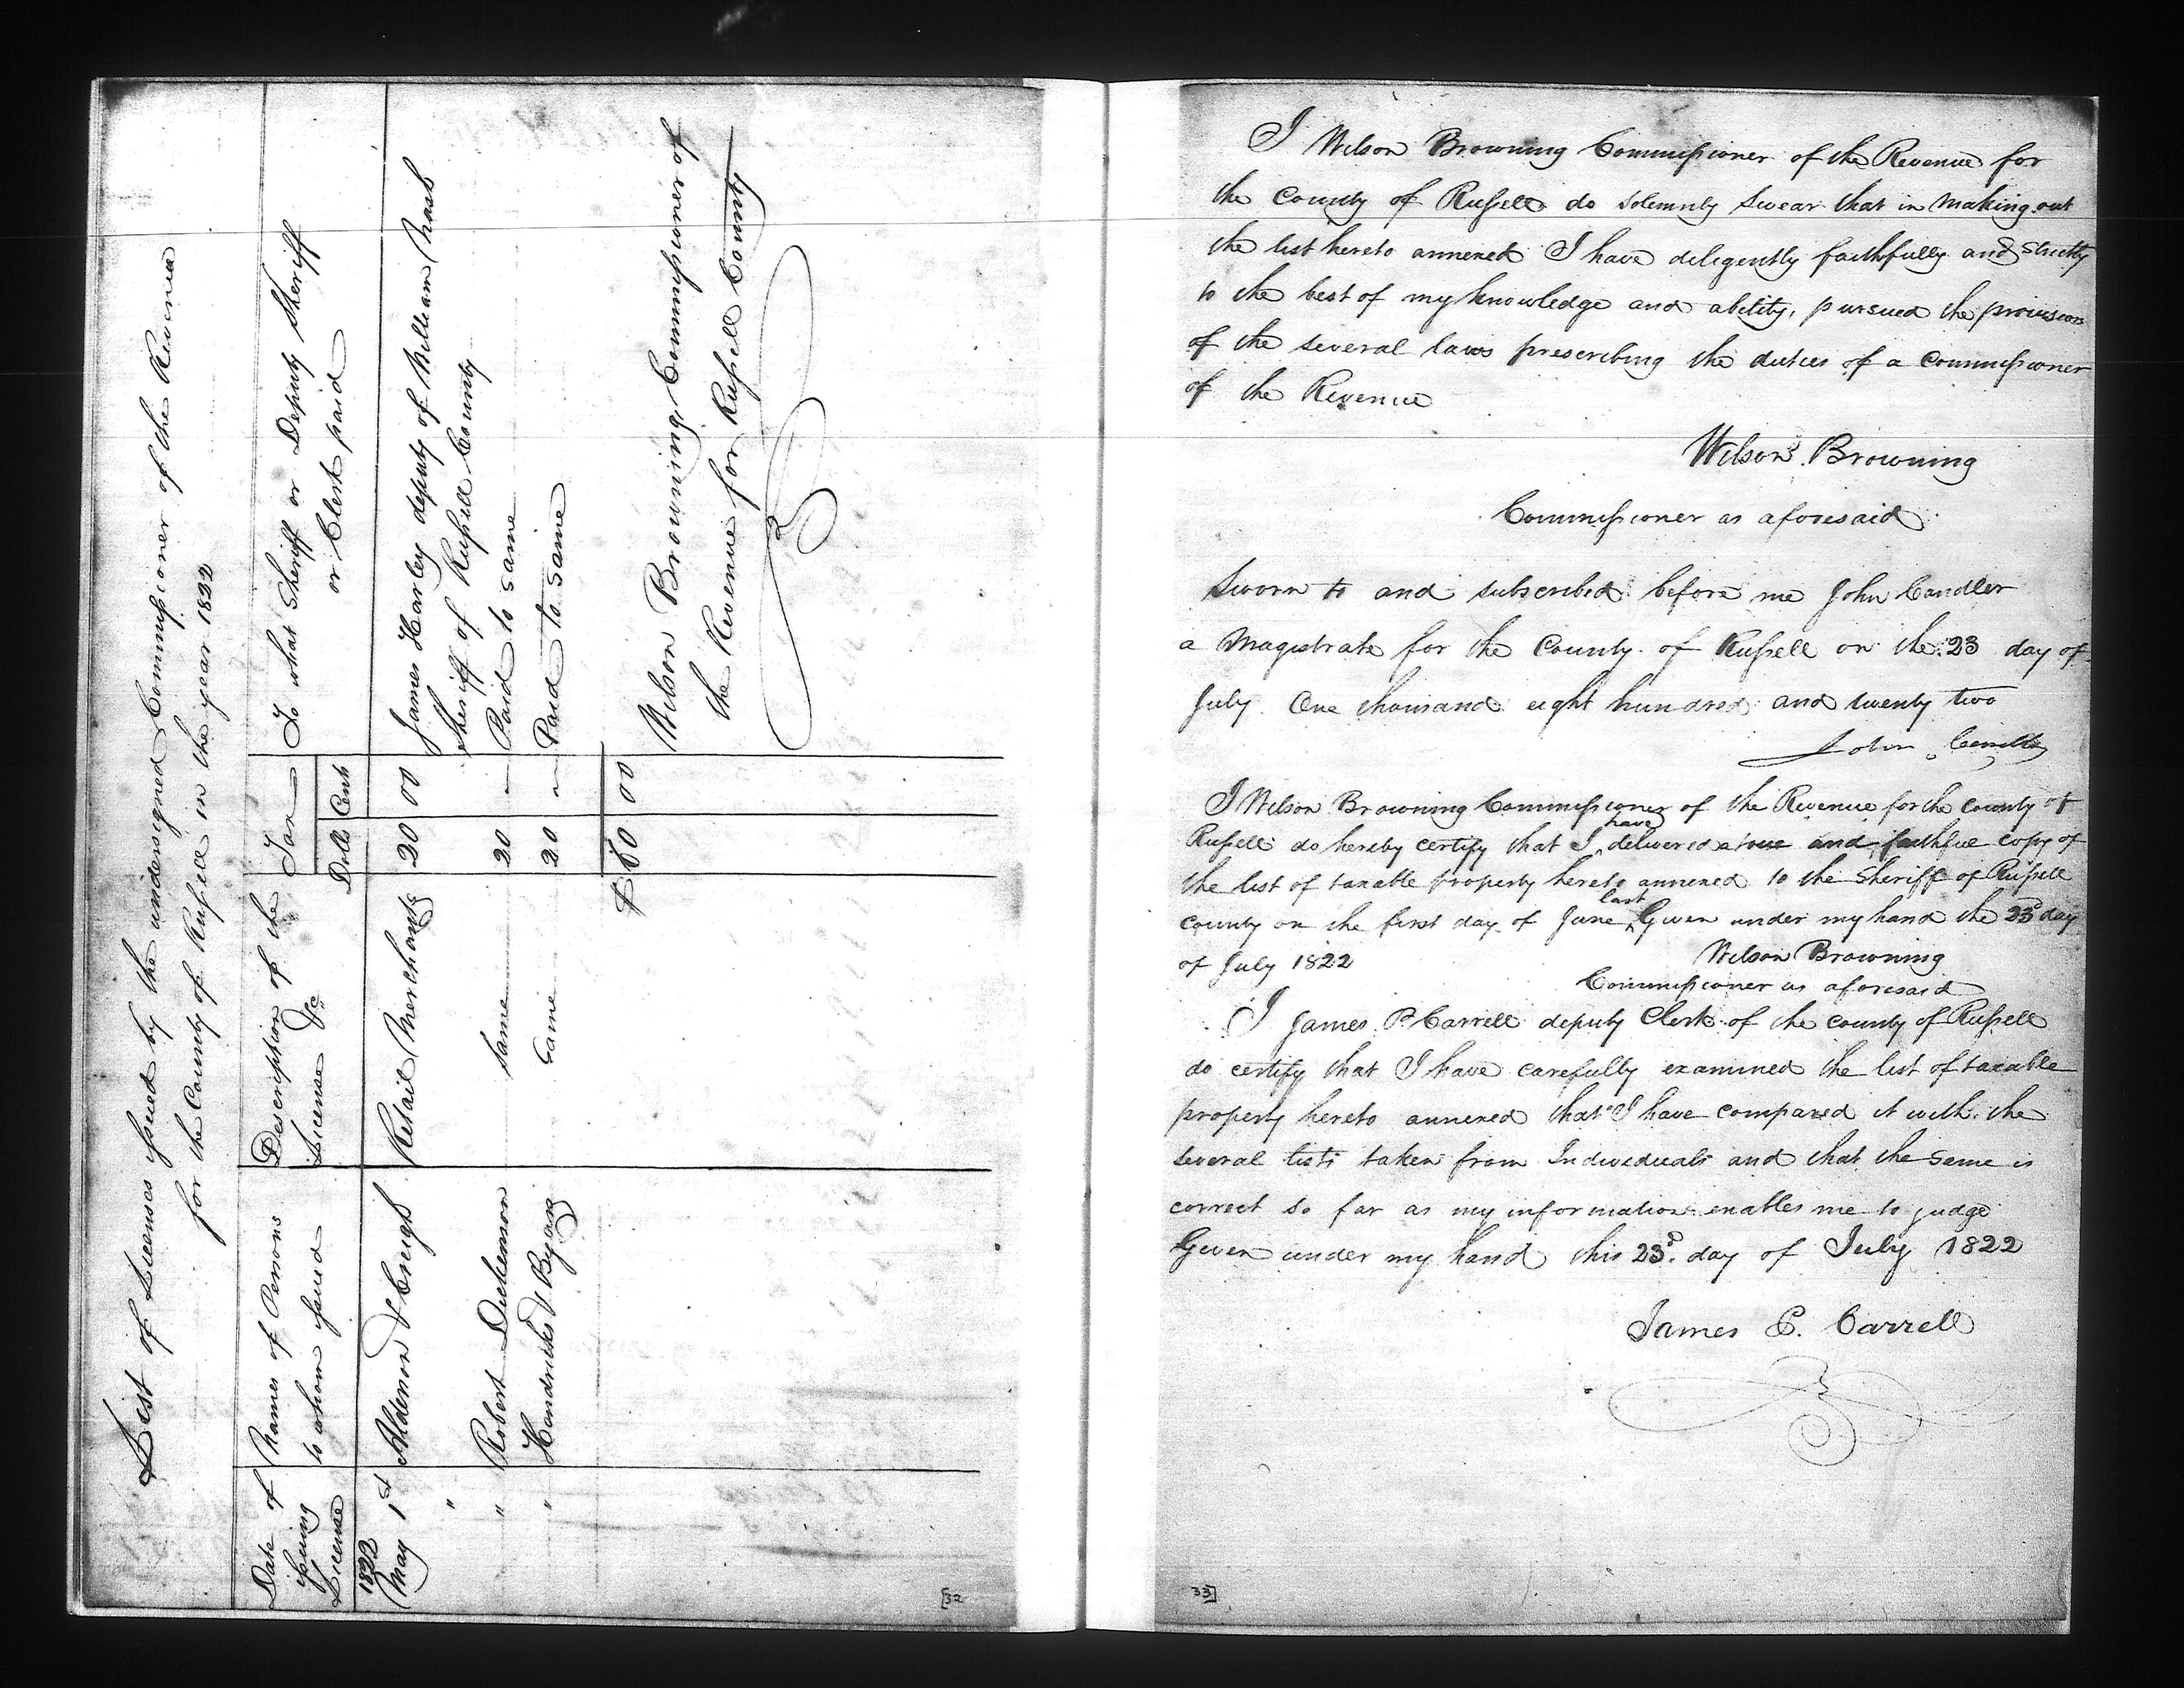 List of Licenses issued by the undersigned Commissioner of the Revenue
for the County of Russell in the year 1822
Date of issuing License
Names of Persons to whom issued
Description of the License &c
Tax
Dolls Cents
To what Sheriff or Deputy Sheriff or Clerk paid
1822
May 1st Alderson & Retail Merchants 20 00 James Harley deputy of William Nash
" Sheriff of Russell County
" Robert Dickenson same 20 — Paid to same
" Hendricks & Bryans Same 20 ~ Paid to same
$60 00
Wilson Browning Commissioner of
the Revenue for Russell County
[32
I Wilson Browning Commissioner of the Revenue for
the County of Russell do solemnly swear that in making out
the list hereto annexed I have deligently faithfully and strictly
to the best of my knowledge and ability, pursued the provisions
of the several laws prescribing the duties of a Commissioner
of the Revenue
Wilson Browning
Commissioner as aforesaid
Sworn to and subscribed before me John Candler
a Magistrate for the County of Russell on the 23 day of
July One thousand eight hundred and twenty two
John Candler
I Wilson Browning Commissioner of the Revenue for the County of
Russell do hereby certify that I have delivered a true and faithful copy of
the list of taxable property hereto annexed to the Sheriff of Russell
County on the first day of June last Given under my hand the 23d day
of July 1822 Wilson Browning
Commissioner as aforesaid
I James P Carrell deputy Clerk of the county of Russell
do certify that I have carefully examined the list of taxable
property hereto annexed that I have compared it with the
several lists taken from Individuals and that the same is
correct so far as my information enables me to judge
Given under my hand this 23d. day of July 1822
James P. Carrell
33]